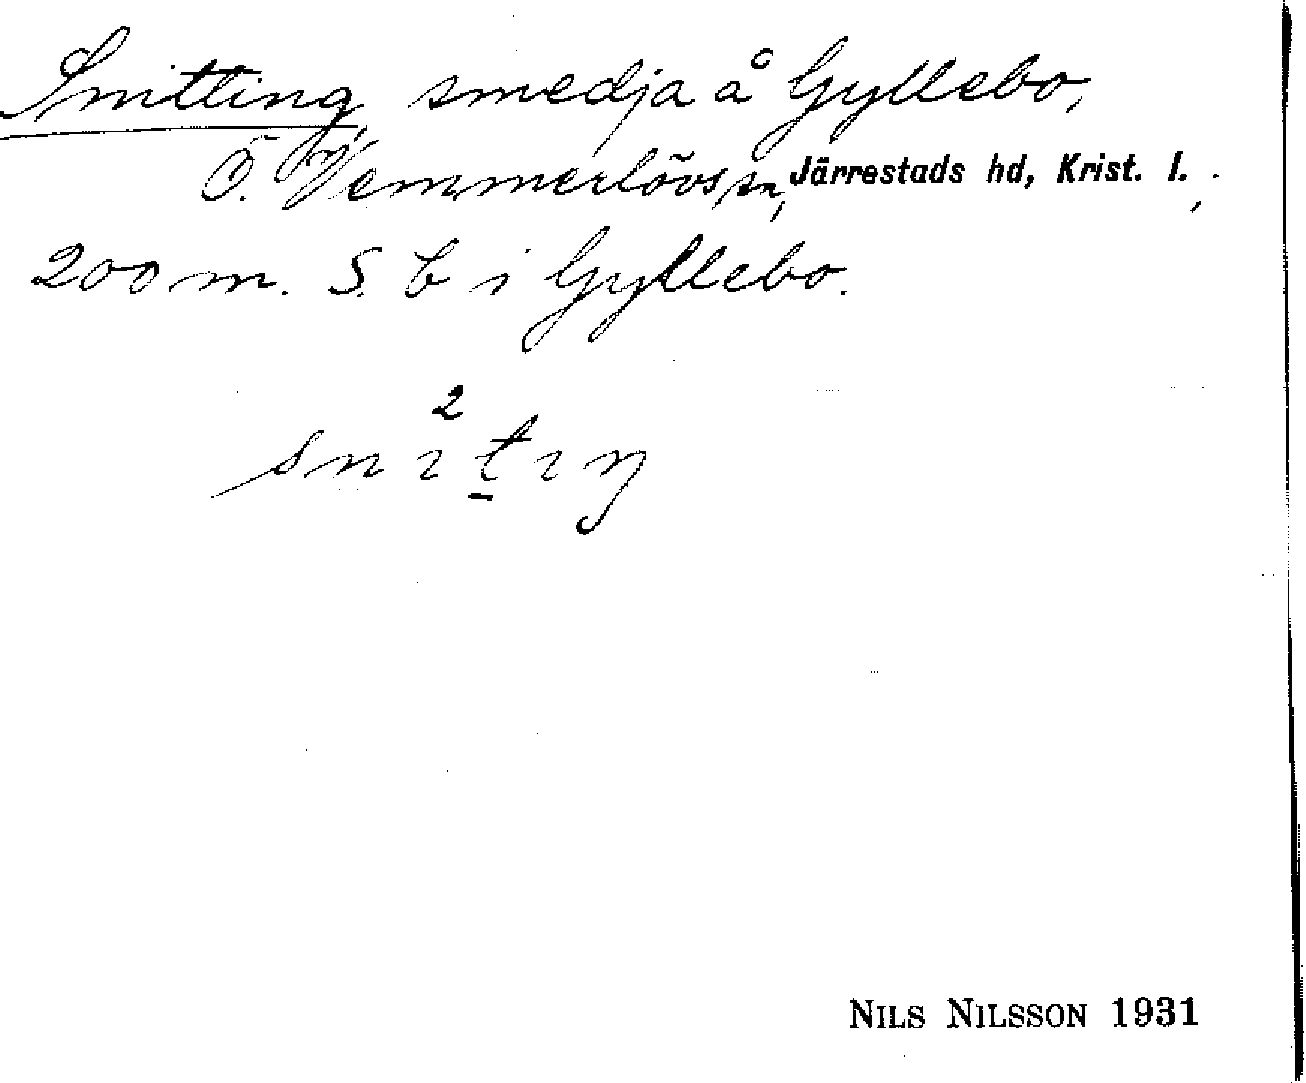 Snitting smedja å Gyllebo,
Ö. Vemmerlövs sn, Järrestads hd, Krist. l.,
200 m. S. b i Gyllebo.
2
snıt̲ıŋ
NILS NILSSON 1931